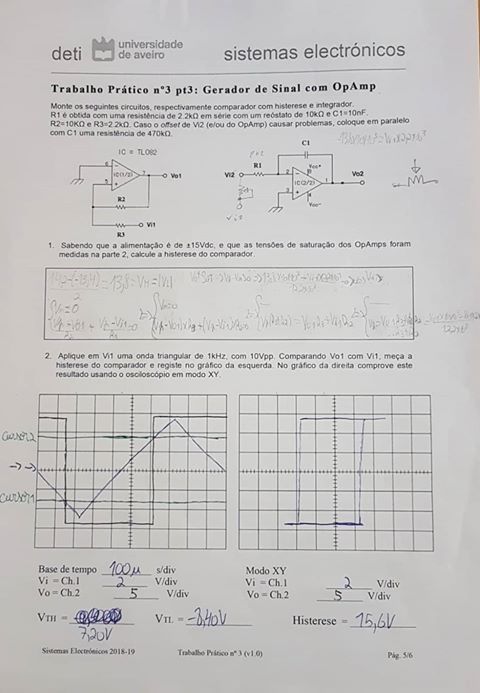 deti universidade de aveiro sistemas electrónicos
Trabalho Prático nº3 pt3: Gerador de Sinal com OpAmp
Monte os seguintes circuitos, respectivamente comparador com histerese e integrador.
R1 é obtida com uma resistência de 2.2kΩ em série com um reóstato de 10kΩ e C1=10nF.
R2=10KΩ e R3=2.2kΩ. Caso o offset de Vi2 (e/ou do OpAmp) causar problemas, coloque em paralelo
com C1 uma resistência de 470kΩ.
IC = TL082
C1
R1
Vcc+
6
5
7
IC(1/2)
Vo1
Vi2
2
3
1
IC(2/2)
Vo2
Vcc-
R2
Vi1
R3
1. Sabendo que a alimentação é de ±15Vdc, e que as tensões de saturação dos OpAmps foram
medidas na parte 2, calcule a histerese do comparador.
2. Aplique em Vi1 uma onda triangular de 1kHz, com 10Vpp. Comparando Vo1 com Vi1, meça a
histerese do comparador e registe no gráfico da esquerda. No gráfico da direita comprove este
resultado usando o osciloscópio em modo XY.
cursor2
cursor1
Base de tempo 100µ s/div
Vi = Ch.1 2 V/div
Vo = Ch.2 5 V/div
Modo XY
Vi = Ch.1 2 V/div
Vo = Ch.2 5 V/div
VTH = 7,20V VTL = -8,40V Histerese = 15,6V
Sistemas Electrónicos 2018-19 Trabalho Prático nº 3 (v1.0) Pág. 5/6